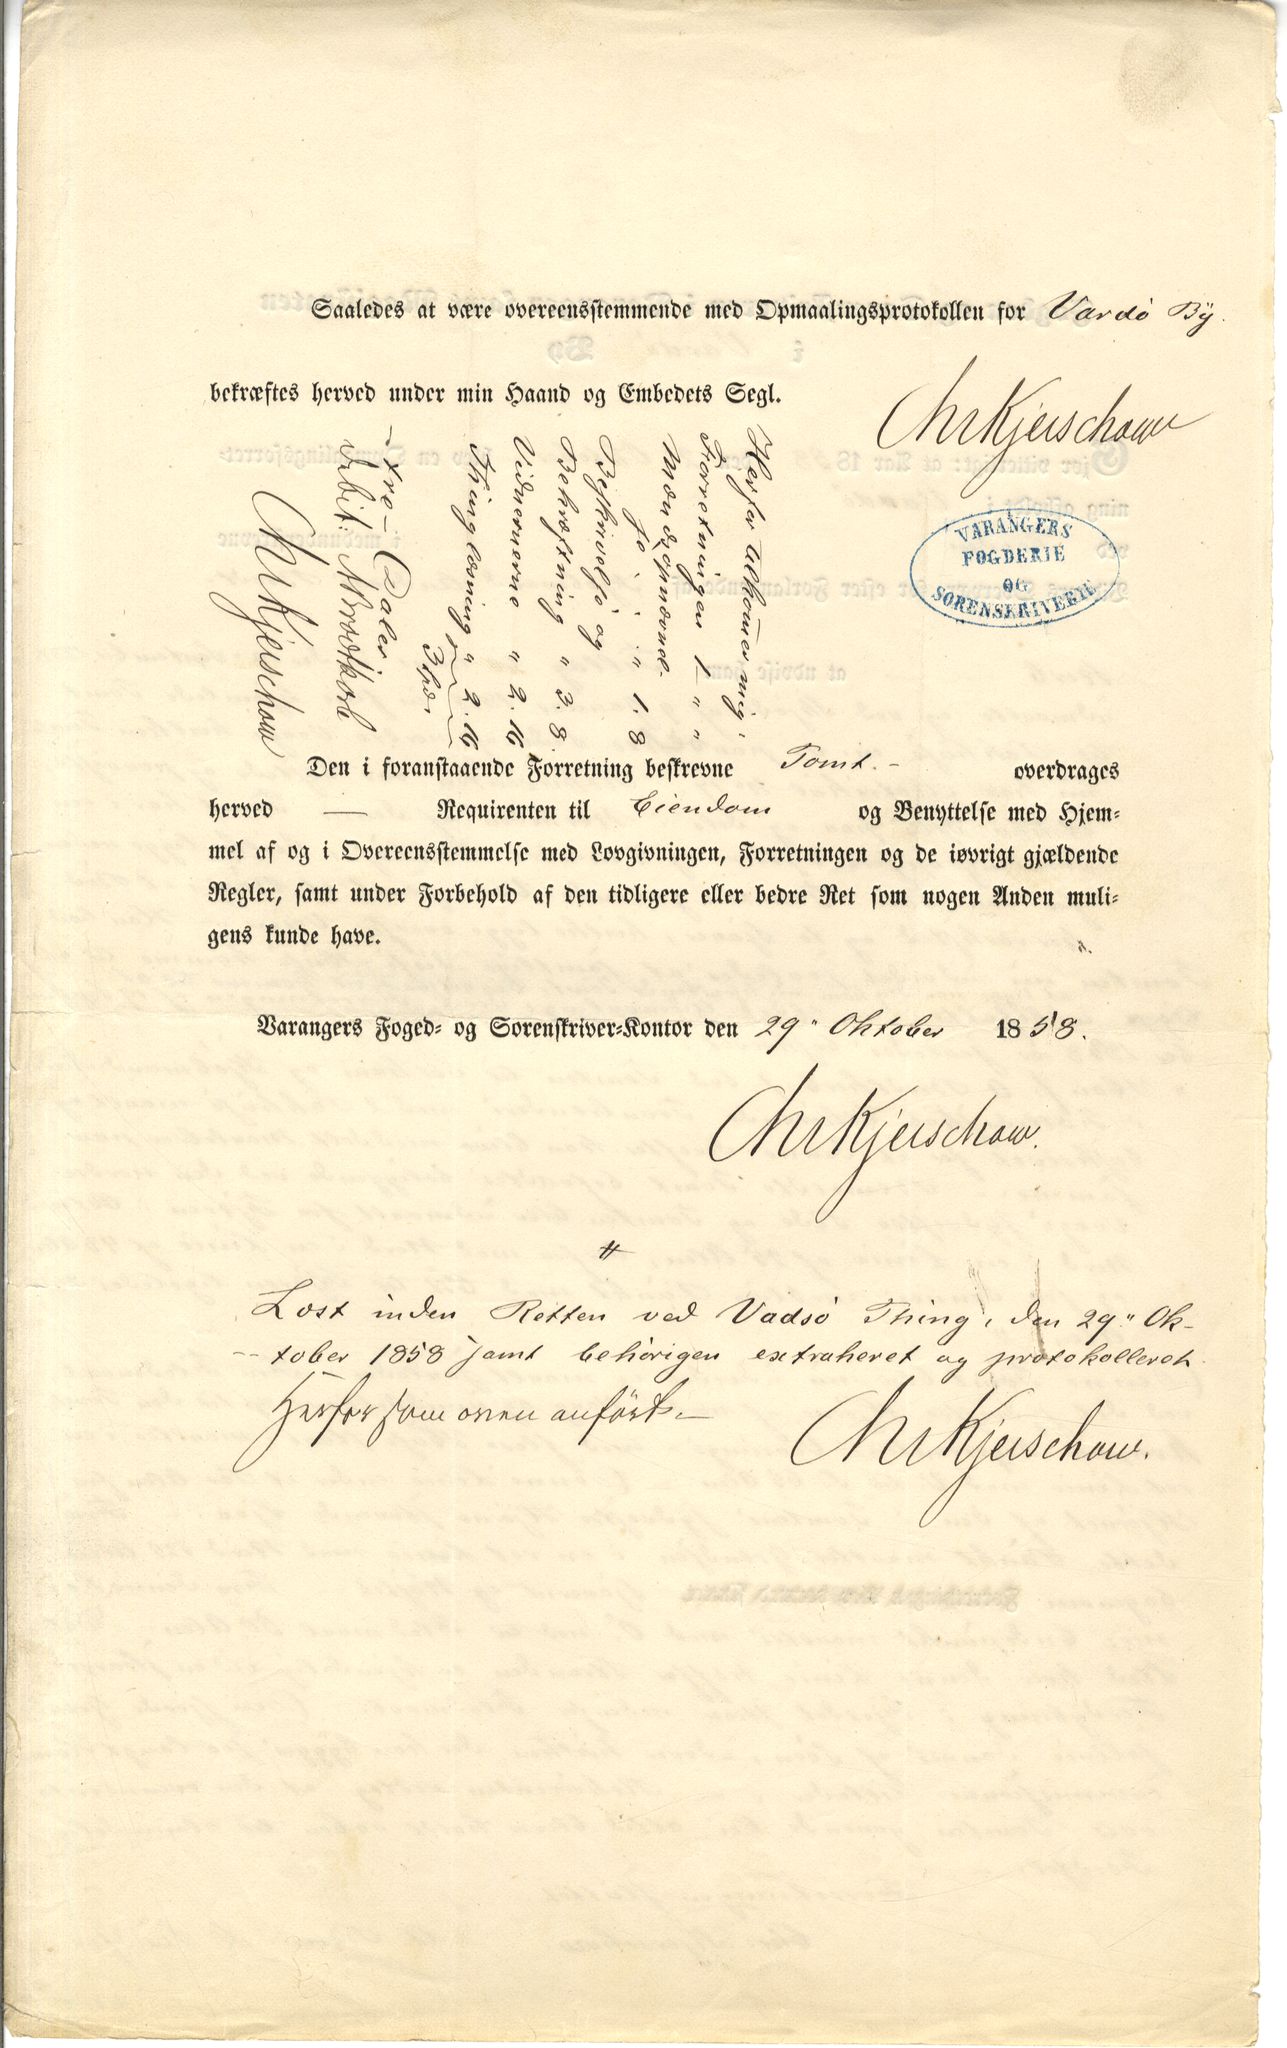 Saaledes at være overeensstemmende med Opmaalingsprotokollen for Vardö By.
bekræftes herved under min Haand og Embedets Segl.
Chr Kjerschow
VARANGERS
FOGDERIE
OG
SORENSKRIVERIE
Herfor tilkommer mig:
Forretningen 1 " "
Mændsopnævnel-
se . . " 1. 8
Beskrivelse og
Bekræftning " 3. 8
Vidnerne " 2. 16
Thinglæsning " 2. 16
3 Spd.
- tre - Daler
debit:
Chr Kjerschow
Den i foranstaaende Forretning beskrevne Tomt. - overdrages
herved — Requirenten til Eiendom og Benyttelse med Hjem=
mel af og i Overeensstemmelse med Lovgivningen, Forretningen og de iøvrigt gjældende
Regler, samt under Forbehold af den tidligere eller bedre Ret som nogen Anden muli=
gens kunde have.
Varangers Foged= og Sorenskriver=Kontor den 29" Oktober 1858.
Chr Kjerschow.
Læst inden Retten ved Vadsö Thing, den 29" Ok-
-tober 1858 samt behörigen extraheret og protokolleret.
Herfor som oven anfört.—
Chr Kjerschow.